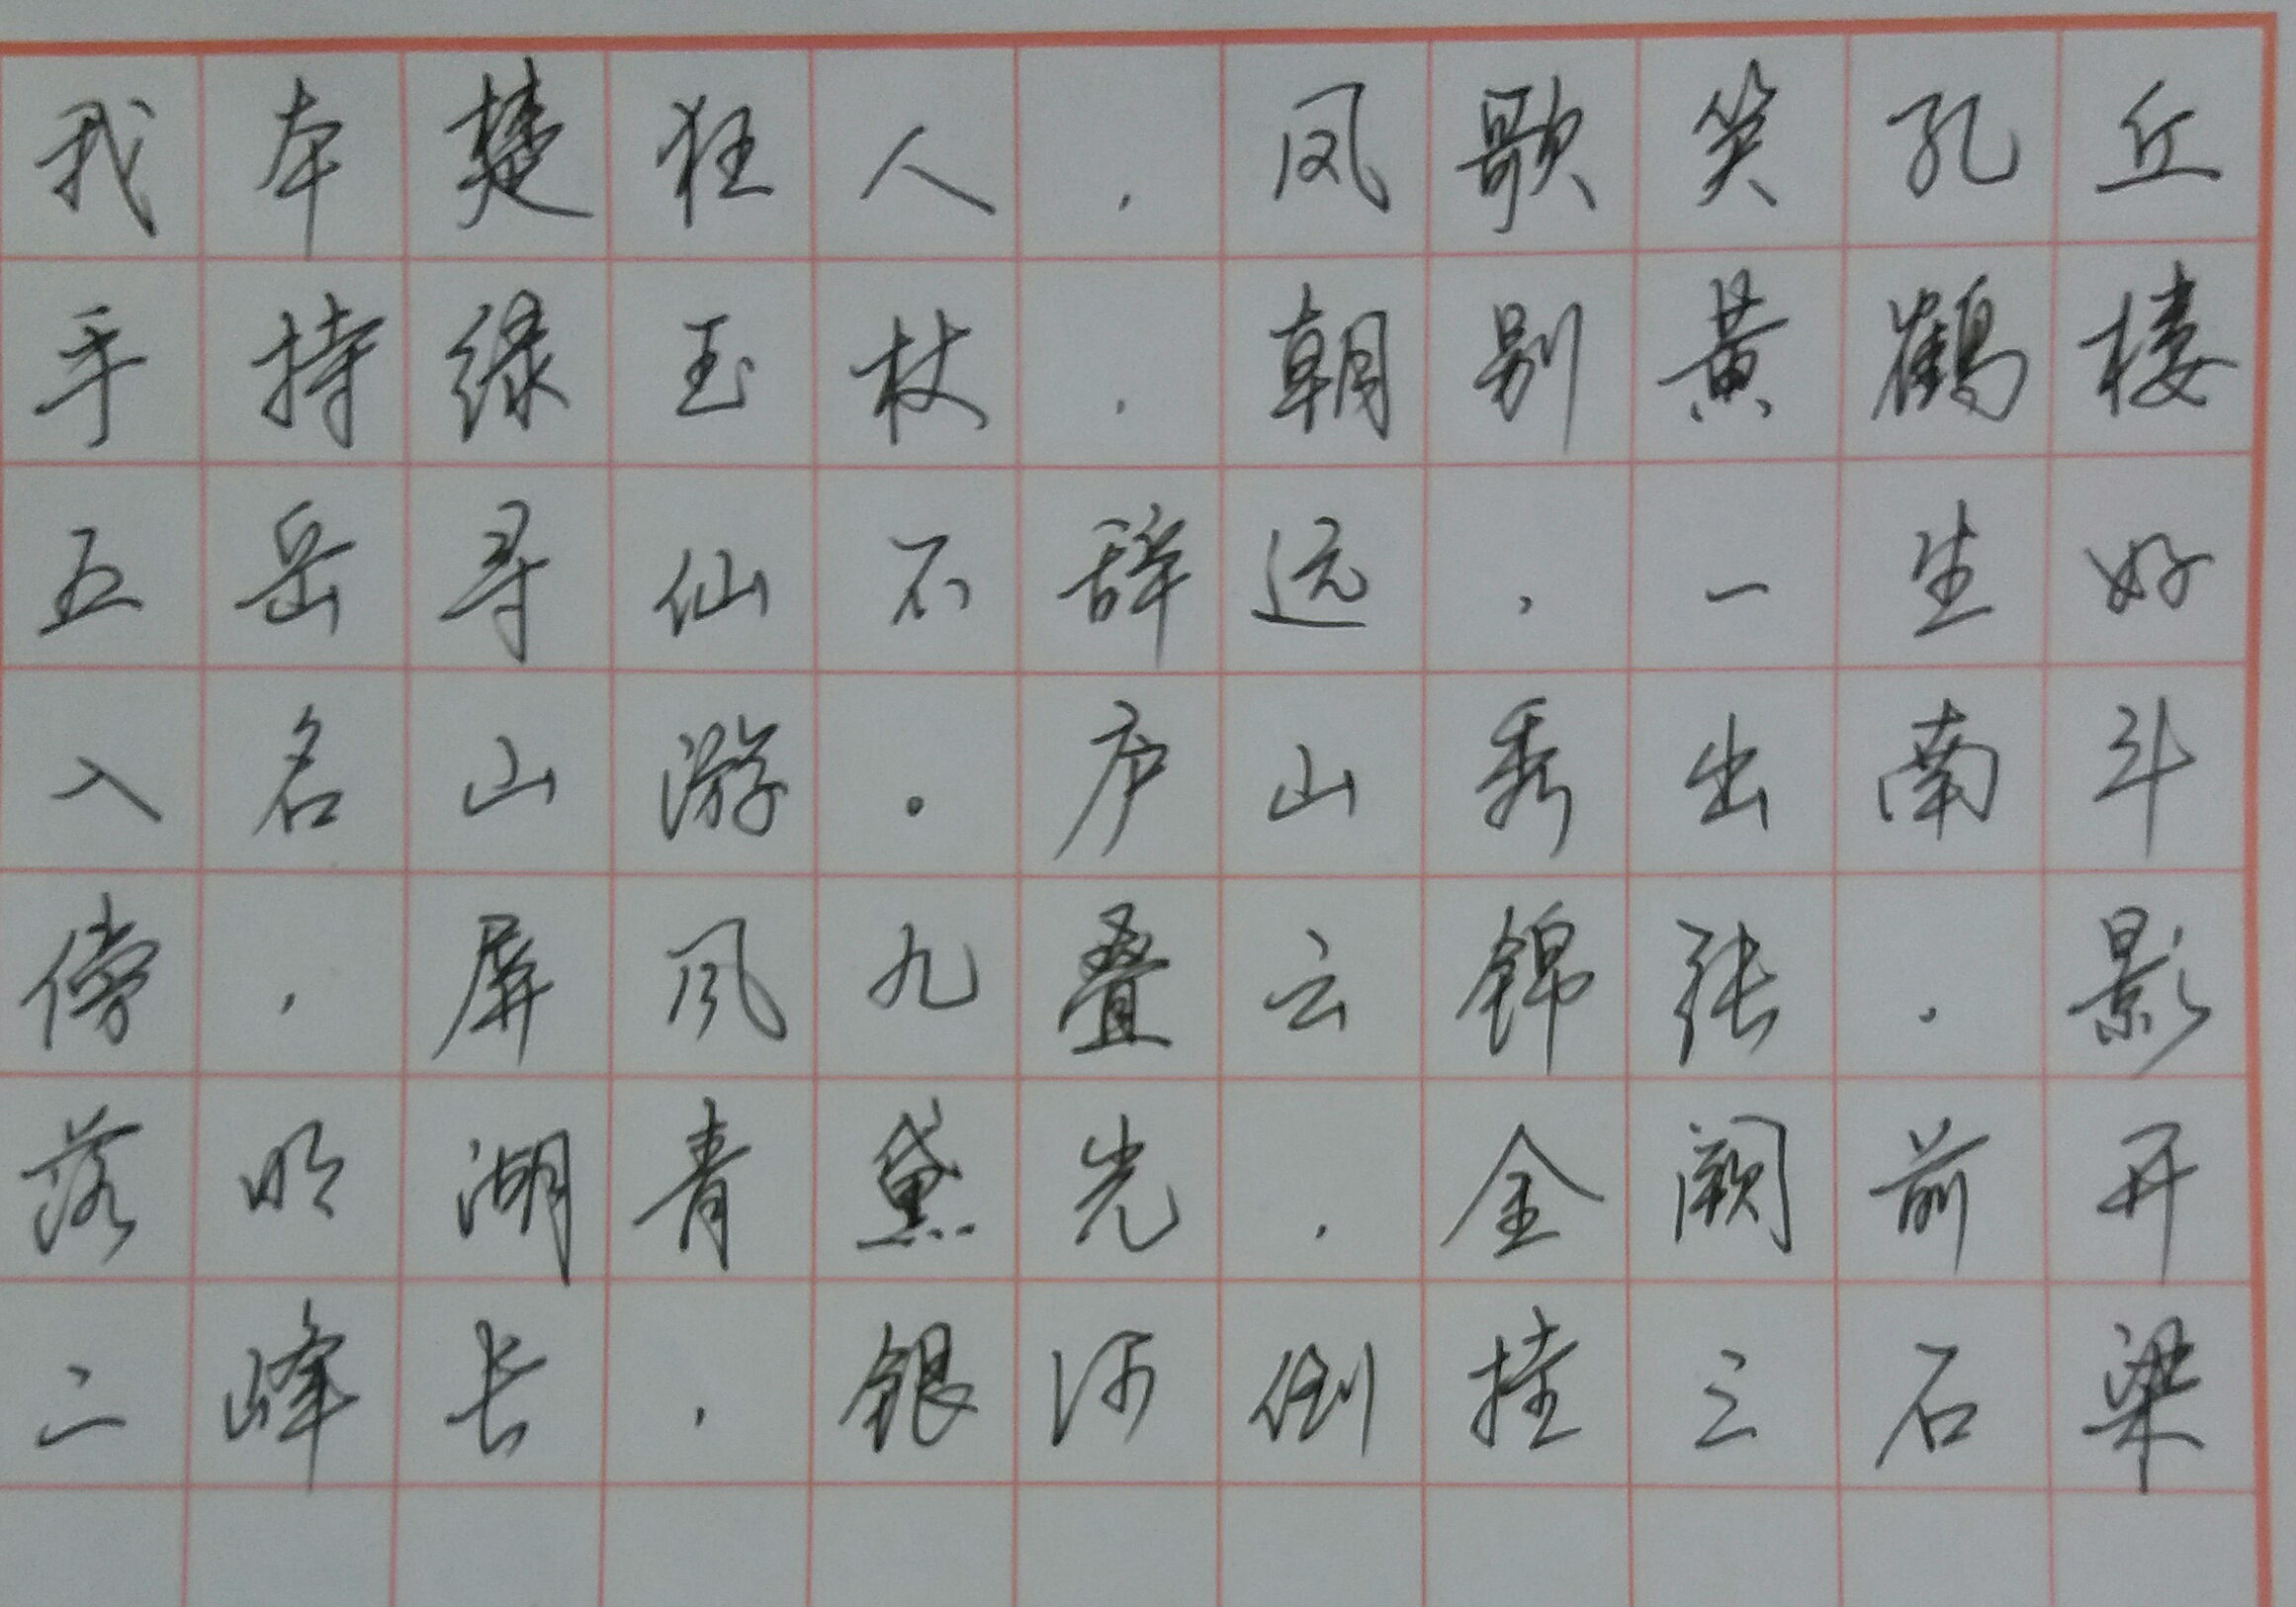 我本楚狂人，凤歌笑孔丘
手持绿玉杖，朝别黄鹤楼
五岳寻仙不辞远，一生好
入名山游。庐山秀出南斗
傍，屏风九叠云锦张，影
落明湖青黛光，金阙前开
二峰长，银河倒挂三石梁